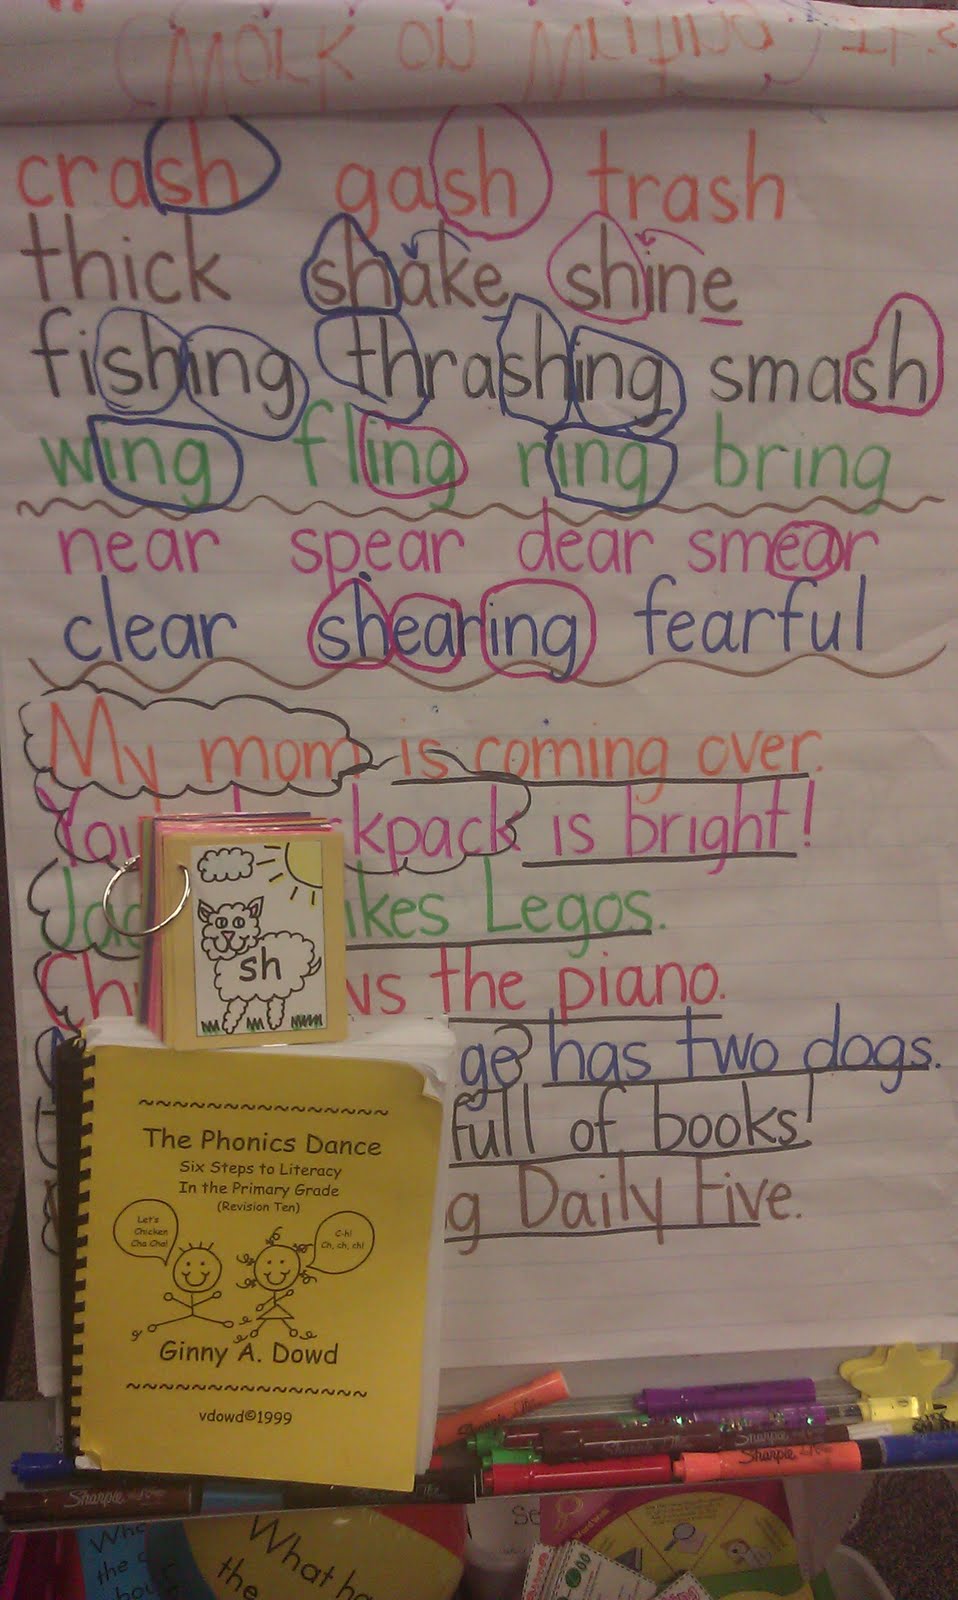 Work on Writing
crash gash trash
thick shake shine
fishing thrashing smash
wing fling ring bring
near spear dear smear
clear shearing fearful
My mom is coming over.
is bright!
Legos.
the piano.
has two dogs.
full of books!
Daily Five.
sh
~~~~~~~~~~~~~~~
The Phonics Dance
Six Steps to Literacy
In the Primary Grade
(Revision Ten)
Let's
Chicken
Cha Cha!
C-h!
Ch, ch, ch!
Ginny A. Dowd
~~~~~~~~~~~~~~~
vdowd©1999
Sharpie
Sharpie
Sharpie
What
the
What
the
Word Work